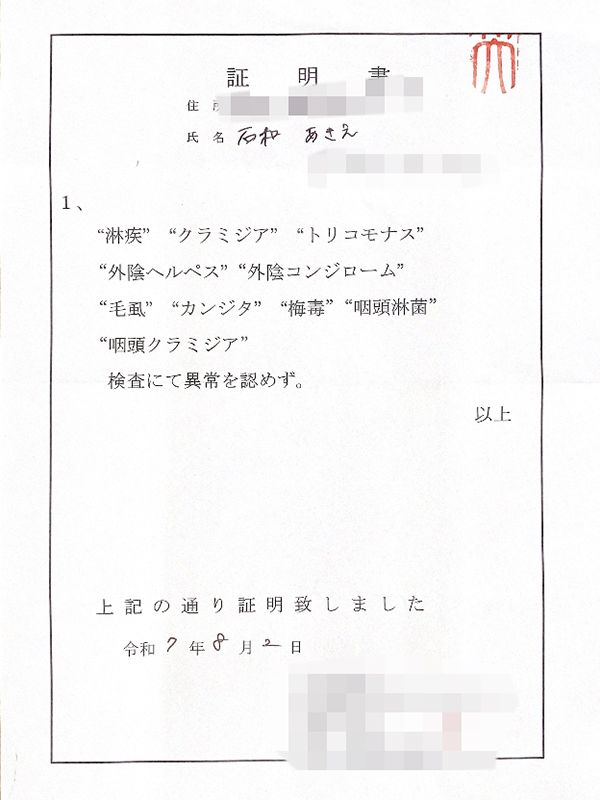 証明書
住
氏名 石和 あきえ
1、
“淋疾” “クラミジア” “トリコモナス”
“外陰ヘルペス” “外陰コンジローム”
“毛虱” “カンジタ” “梅毒” “咽頭淋菌”
“咽頭クラミジア”
検査にて異常を認めず。
以上
上記の通り証明致しました
令和7年8月2日